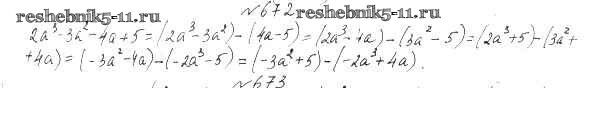 reshebnik5-11.ru №672 reshebnik5-11.ru
2a³-3a²-4a+5=(2a³-3a²)-(4a-5)=(2a³-4a)-(3a²-5)=(2a³+5)-(3a²+
+4a)=(-3a²-4a)-(-2a³-5)=(-3a²+5)-(-2a³+4a).
№673